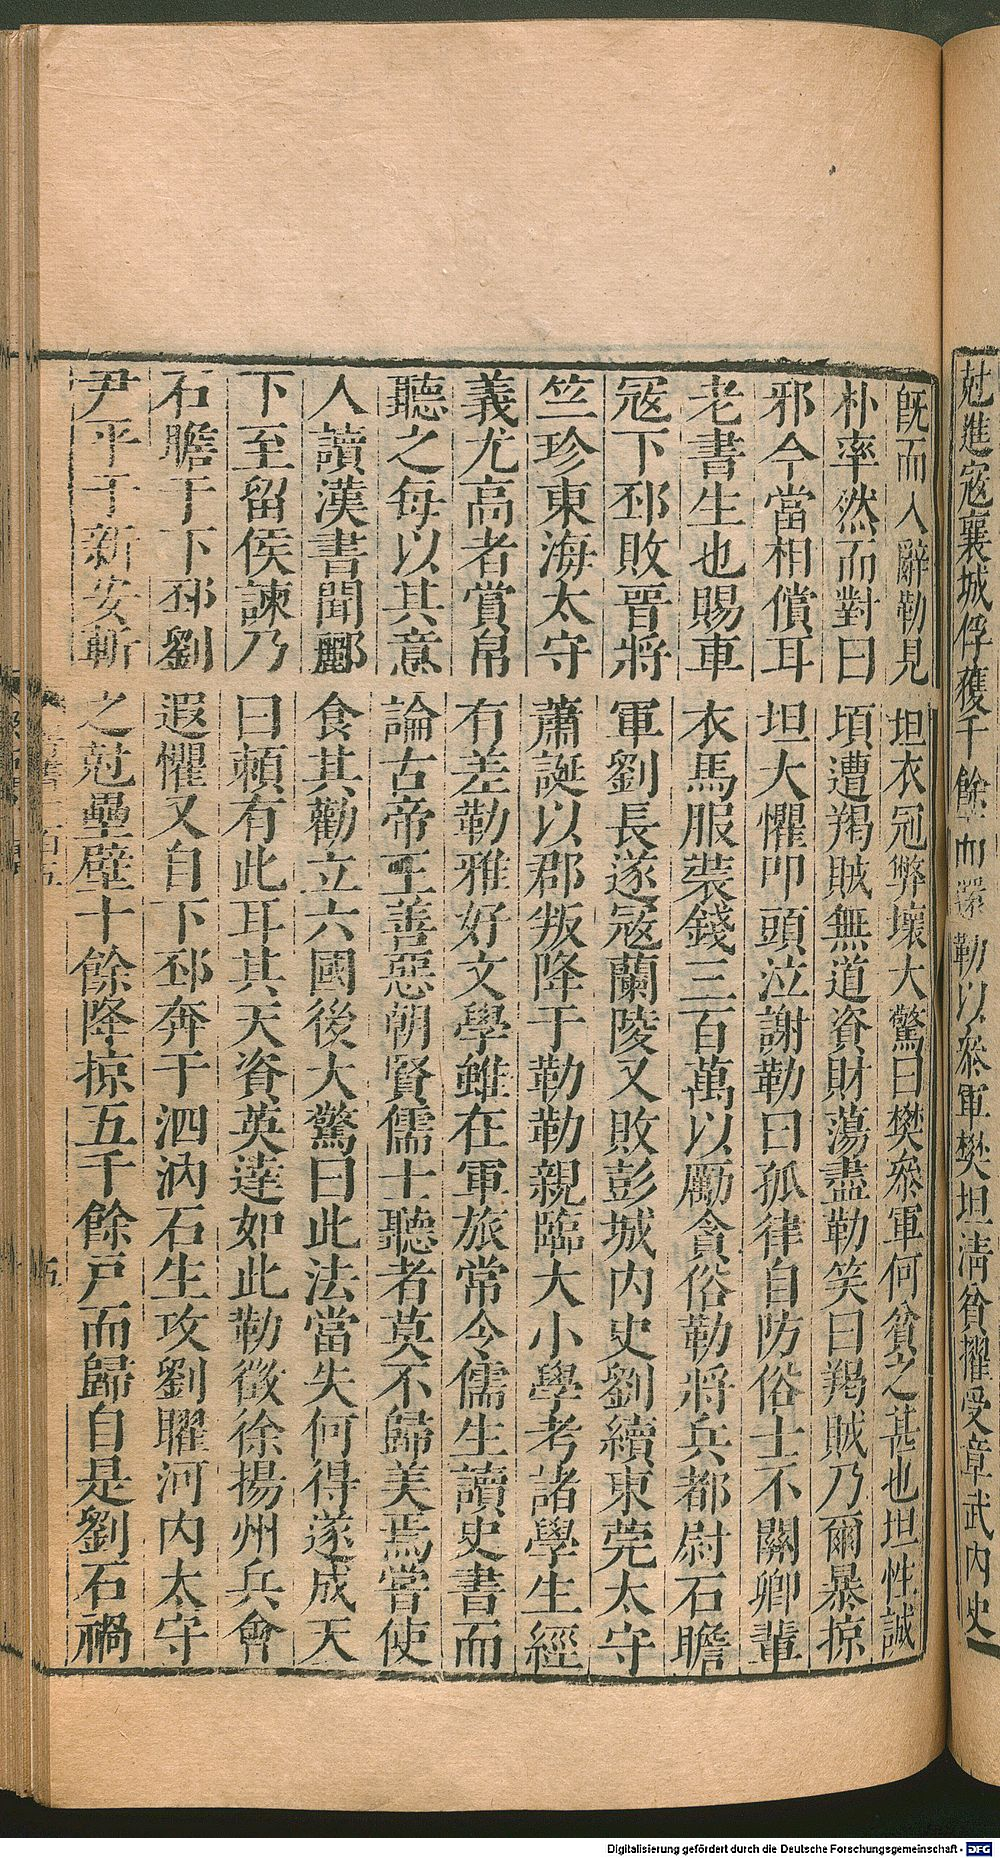 尅進寇襄城俘獲千餘而還勒以叅軍樊坦清貧擢受章武內史
旣而入辭勒見坦衣冠弊壞大驚曰樊叅軍何貧之甚也坦性誠
朴率然而對曰頃遭羯賊無道資財蕩盡勒笑曰羯賊乃爾暴掠
邪今當相償耳坦大懼叩頭泣謝勒曰孤律自防俗士不關卿輩
老書生也賜車衣馬服裝錢三百萬以勵貪俗勒將兵都尉石瞻
寇下邳敗晉將軍劉長遂寇蘭陵又敗彭城內史劉續東莞太守
竺珍東海太守蕭誕以郡叛降于勒勒親臨大小學考諸學生經
義尤高者賞帛有差勒雅好文學雖在軍旅常令儒生讀史書而
聽之每以其意論古帝王善惡朝賢儒士聽者莫不歸美焉嘗使
人讀漢書聞酈食其勸立六國後大驚曰此法當失何得遂成天
下至留侯諫乃曰賴有此耳其天資英達如此勒徵徐揚州兵會
石瞻于下邳劉遐懼又自下邳奔于泗汭石生攻劉曜河內太守
尹平于新安斬之尅壘壁十餘降掠五千餘戶而歸自是劉石禍
五
Digitalisierung gefördert durch die Deutsche Forschungsgemeinschaft - DFG